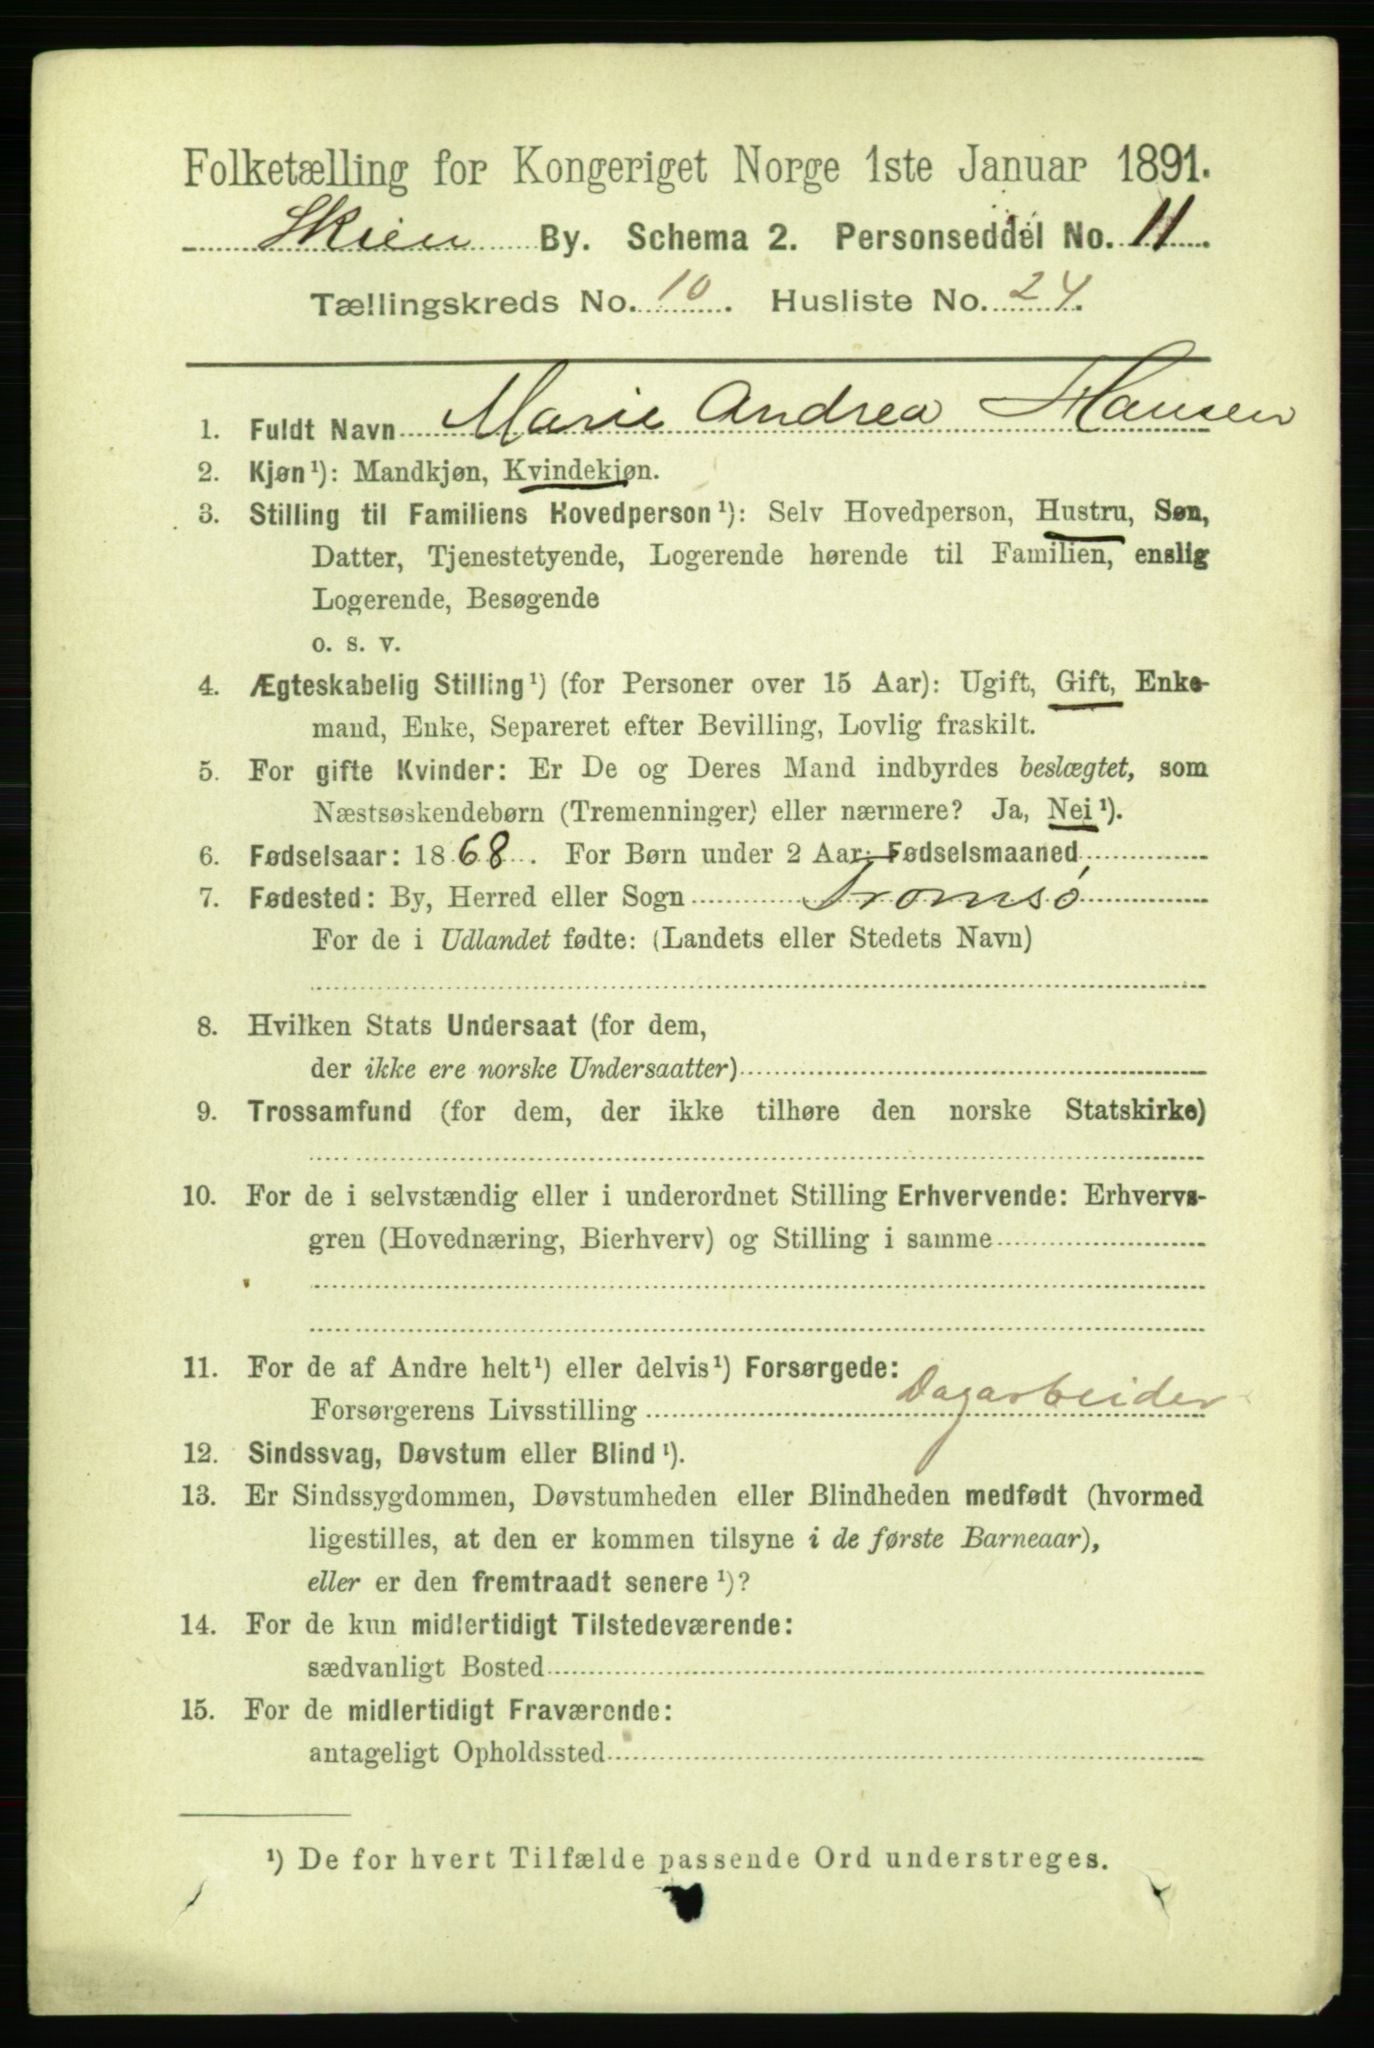 Folketælling for Kongeriget Norge 1ste Januar 1891.
Skien By. Schema 2. Personseddel No. 11.
Tællingskreds No. 10. Husliste No. 24.
1. Fuldt Navn Marie Andrea Hansen
2. Kjøn¹): Mandkjøn, Kvindekjøn.
3. Stilling til Familiens Hovedperson¹): Selv Hovedperson, Hustru, Søn,
Datter, Tjenestetyende, Logerende hørende til Familien, enslig
Logerende, Besøgende
o. s. v.
4. Ægteskabelig Stilling¹) (for Personer over 15 Aar): Ugift, Gift, Enke-
mand, Enke, Separeret efter Bevilling, Lovlig fraskilt.
5. For gifte Kvinder: Er De og Deres Mand indbyrdes beslægtet, som
Næstsøskendebørn (Tremenninger) eller nærmere? Ja, Nei¹).
6. Fødselsaar: 1868. For Børn under 2 Aar: Fødselsmaaned
7. Fødested: By, Herred eller Sogn Tromsø
For de i Udlandet fødte: (Landets eller Stedets Navn)
8. Hvilken Stats Undersaat (for dem,
der ikke ere norske Undersaatter)
9. Trossamfund (for dem, der ikke tilhøre den norske Statskirke)
10. For de i selvstændig eller i underordnet Stilling Erhvervende: Erhvervs-
gren (Hovednæring, Bierhverv) og Stilling i samme
11. For de af Andre helt¹) eller delvis¹) Forsørgede:
Forsørgerens Livsstilling Dagarbeider
12. Sindssvag, Døvstum eller Blind¹).
13. Er Sindssygdommen, Døvstumheden eller Blindheden medfødt (hvormed
ligestilles, at den er kommen tilsyne i de første Barneaar),
eller er den fremtraadt senere¹)?
14. For de kun midlertidigt Tilstedeværende:
sædvanligt Bosted
15. For de midlertidigt Fraværende:
antageligt Opholdssted
¹) De for hvert Tilfælde passende Ord understreges.